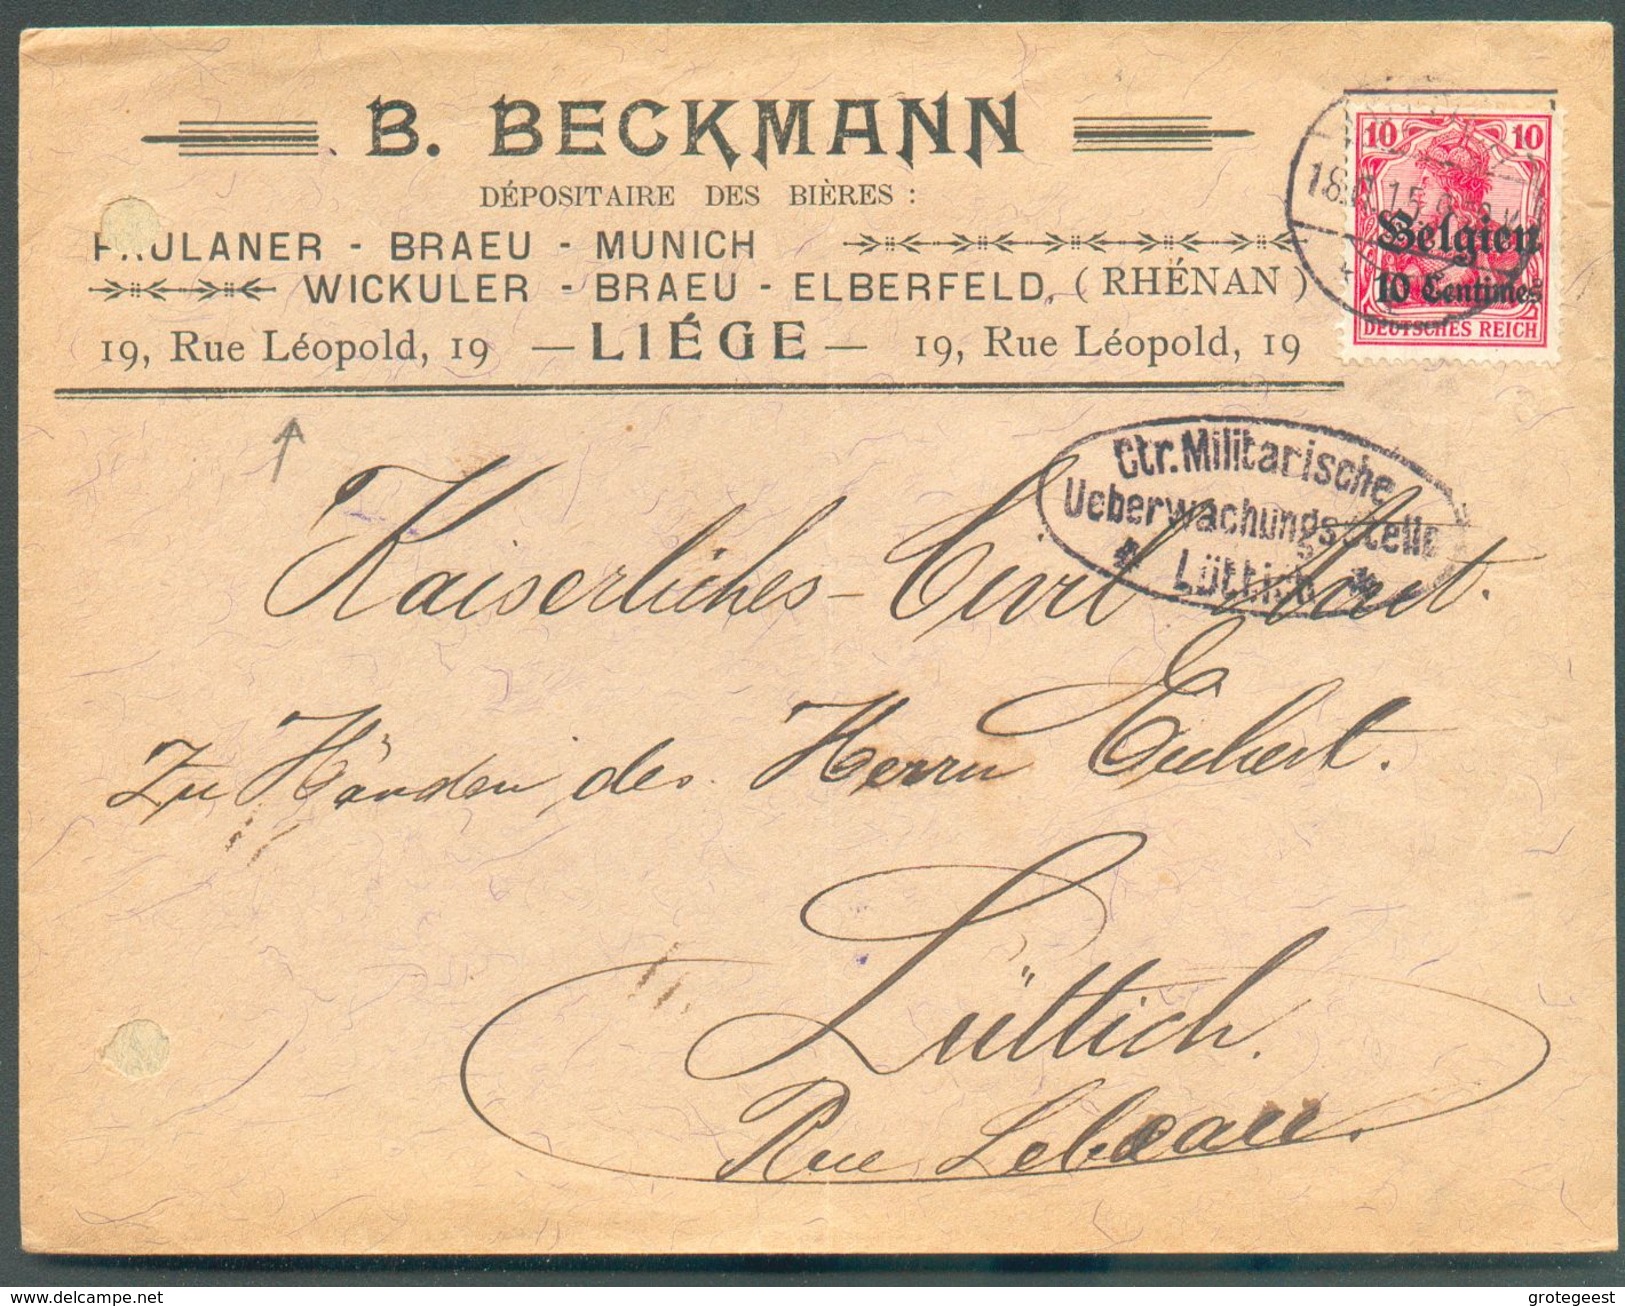 B. BECKMANN
DÉPOSITAIRE DES BIÈRES :
PAULANER - BRAEU - MUNICH
WICKULER - BRAEU - ELBERFELD, (RHÉNAN)
19, Rue Léopold, 19 — LIÉGE — 19, Rue Léopold, 19
10 10
Belgien
10 Centimes
DEUTSCHES REICH
18 15
Ctr. Militarische
Ueberwachungsstelle
* Lüttich *
Kaiserliches - Civil
Zu Händen des Herrn
Lüttich.
Rue
delcampe.net
grotegeest